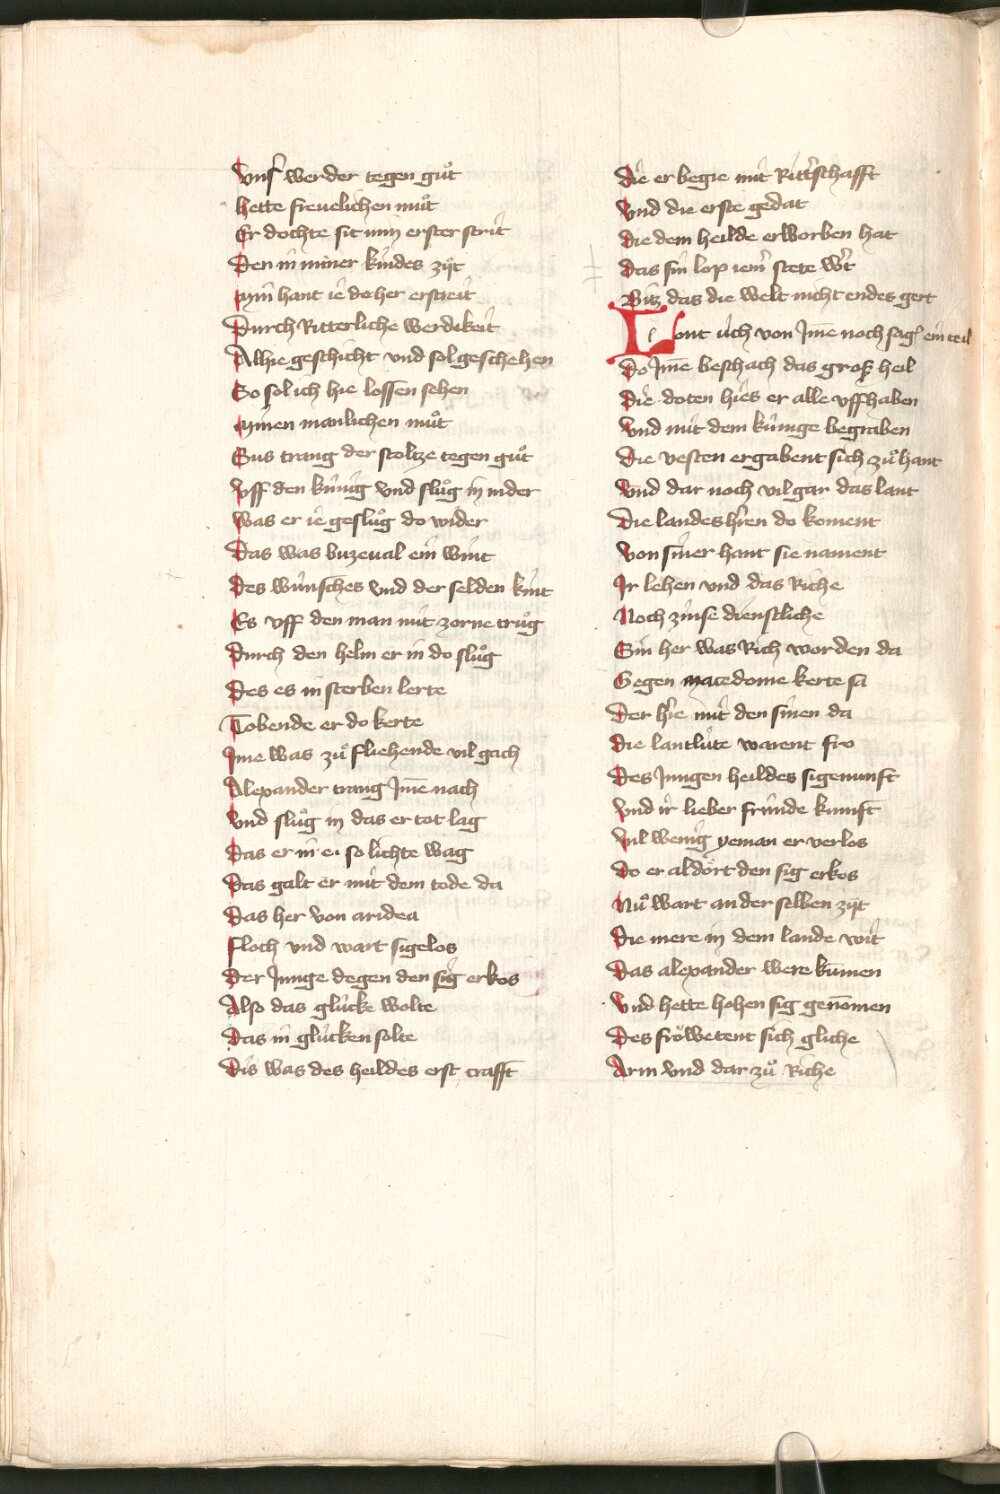 Vnser werder tegen guͦt
Hette freuelichen muͦt
Er dochte sit min erster strit
Den in miner kindes zyt
Myn hant ie do her erstreit
Durch Ritterliche werdikeit
Alhie geschicht vnd sol geschehen
So sol ich hie lossen sehen
Mynen manlichen muͦt
Sus trang der stoltze tegen guͦt
Vff den kúnig vnd sluͦg in nider
Was er ie gesluͦg do wider
Das was buzeual ein wint
Des wúnsches vnd der selden kint
Es vff den man mit zorne truͦg
Durch den helm er in do sluͦg
Des es in sterben lerte
Tobende er do kerte
Ime was zuͦ fliehende vil gach
Alexander trang Jme nach
Vnd sluͦg in das er tot lag
Das er in e. so lichte wag
Das galt er mit dem tode da
Das her von aridea
Floch vnd wart sigelos
Der Junge degen den sig erkos
Also das glúcke wolte
Das in glúcken solte
Dis was des heildes erst crafft
Die er begie mit Ritterschafft
Vnd die erste gedat
Die dem heilde erworben hat
Das sin lop iemer stete wert
Bitz das die welt nicht endes gert
Lont úch von Jme noch sagen ein teil
Do Jme beschach das gros heil
Die doten hies er alle vffhaben
Vnd mit dem kúnige begraben
Die vesten ergabent sich zuͦ hant
Vnd dar noch vil gar das lant
Die landesherren do koment
Von siner hant sie nament
Ir lehen vnd das Riche
Noch zinse dienstliche
Sin her was Rich worden da
Gegen macedome kerte sa
Der herre mit den sinen da
Die lantlúte warent fro
Des Jungen heildes sigenunft
Vnd ir lieber frúnde kunfft
Vil wenig yeman er verlos
Do er aldort den sig erkos
Nuͦ wart an der selben zyt
Die mere in dem lande wit
Das alexander were kumen
Vnd hette hohen sig genomen
Des fröwetent sich gliche
Arm vnd dar zuͦ Riche